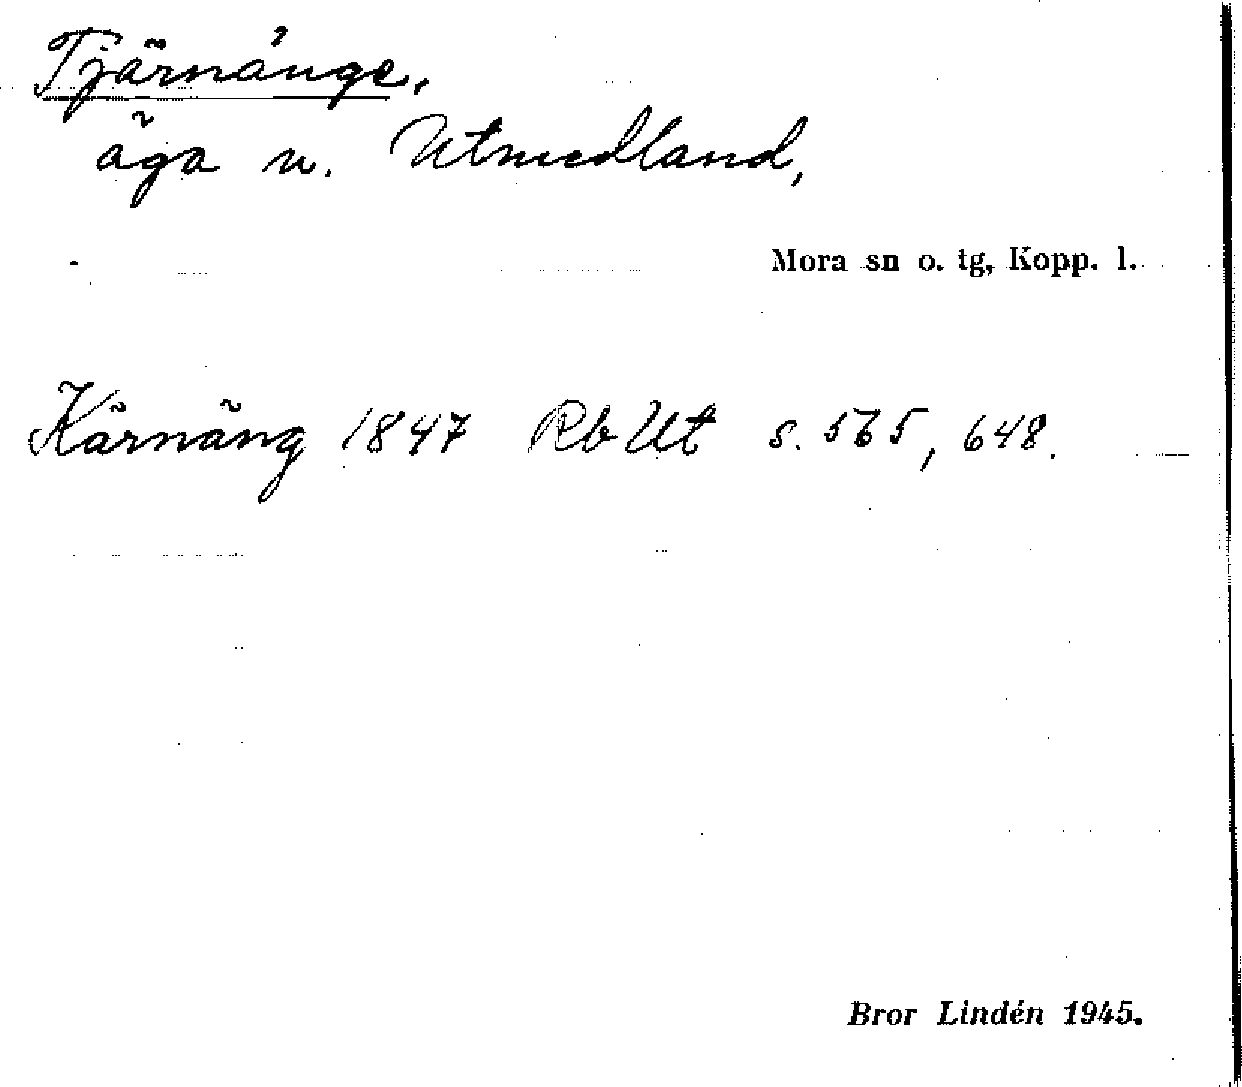 Tjärnänge,
äga n. Utmedland,
Mora sn o. tg, Kopp. l.
Kärnäng 1847 Rb Ut s. 565, 648.
Bror Lindén 1945.